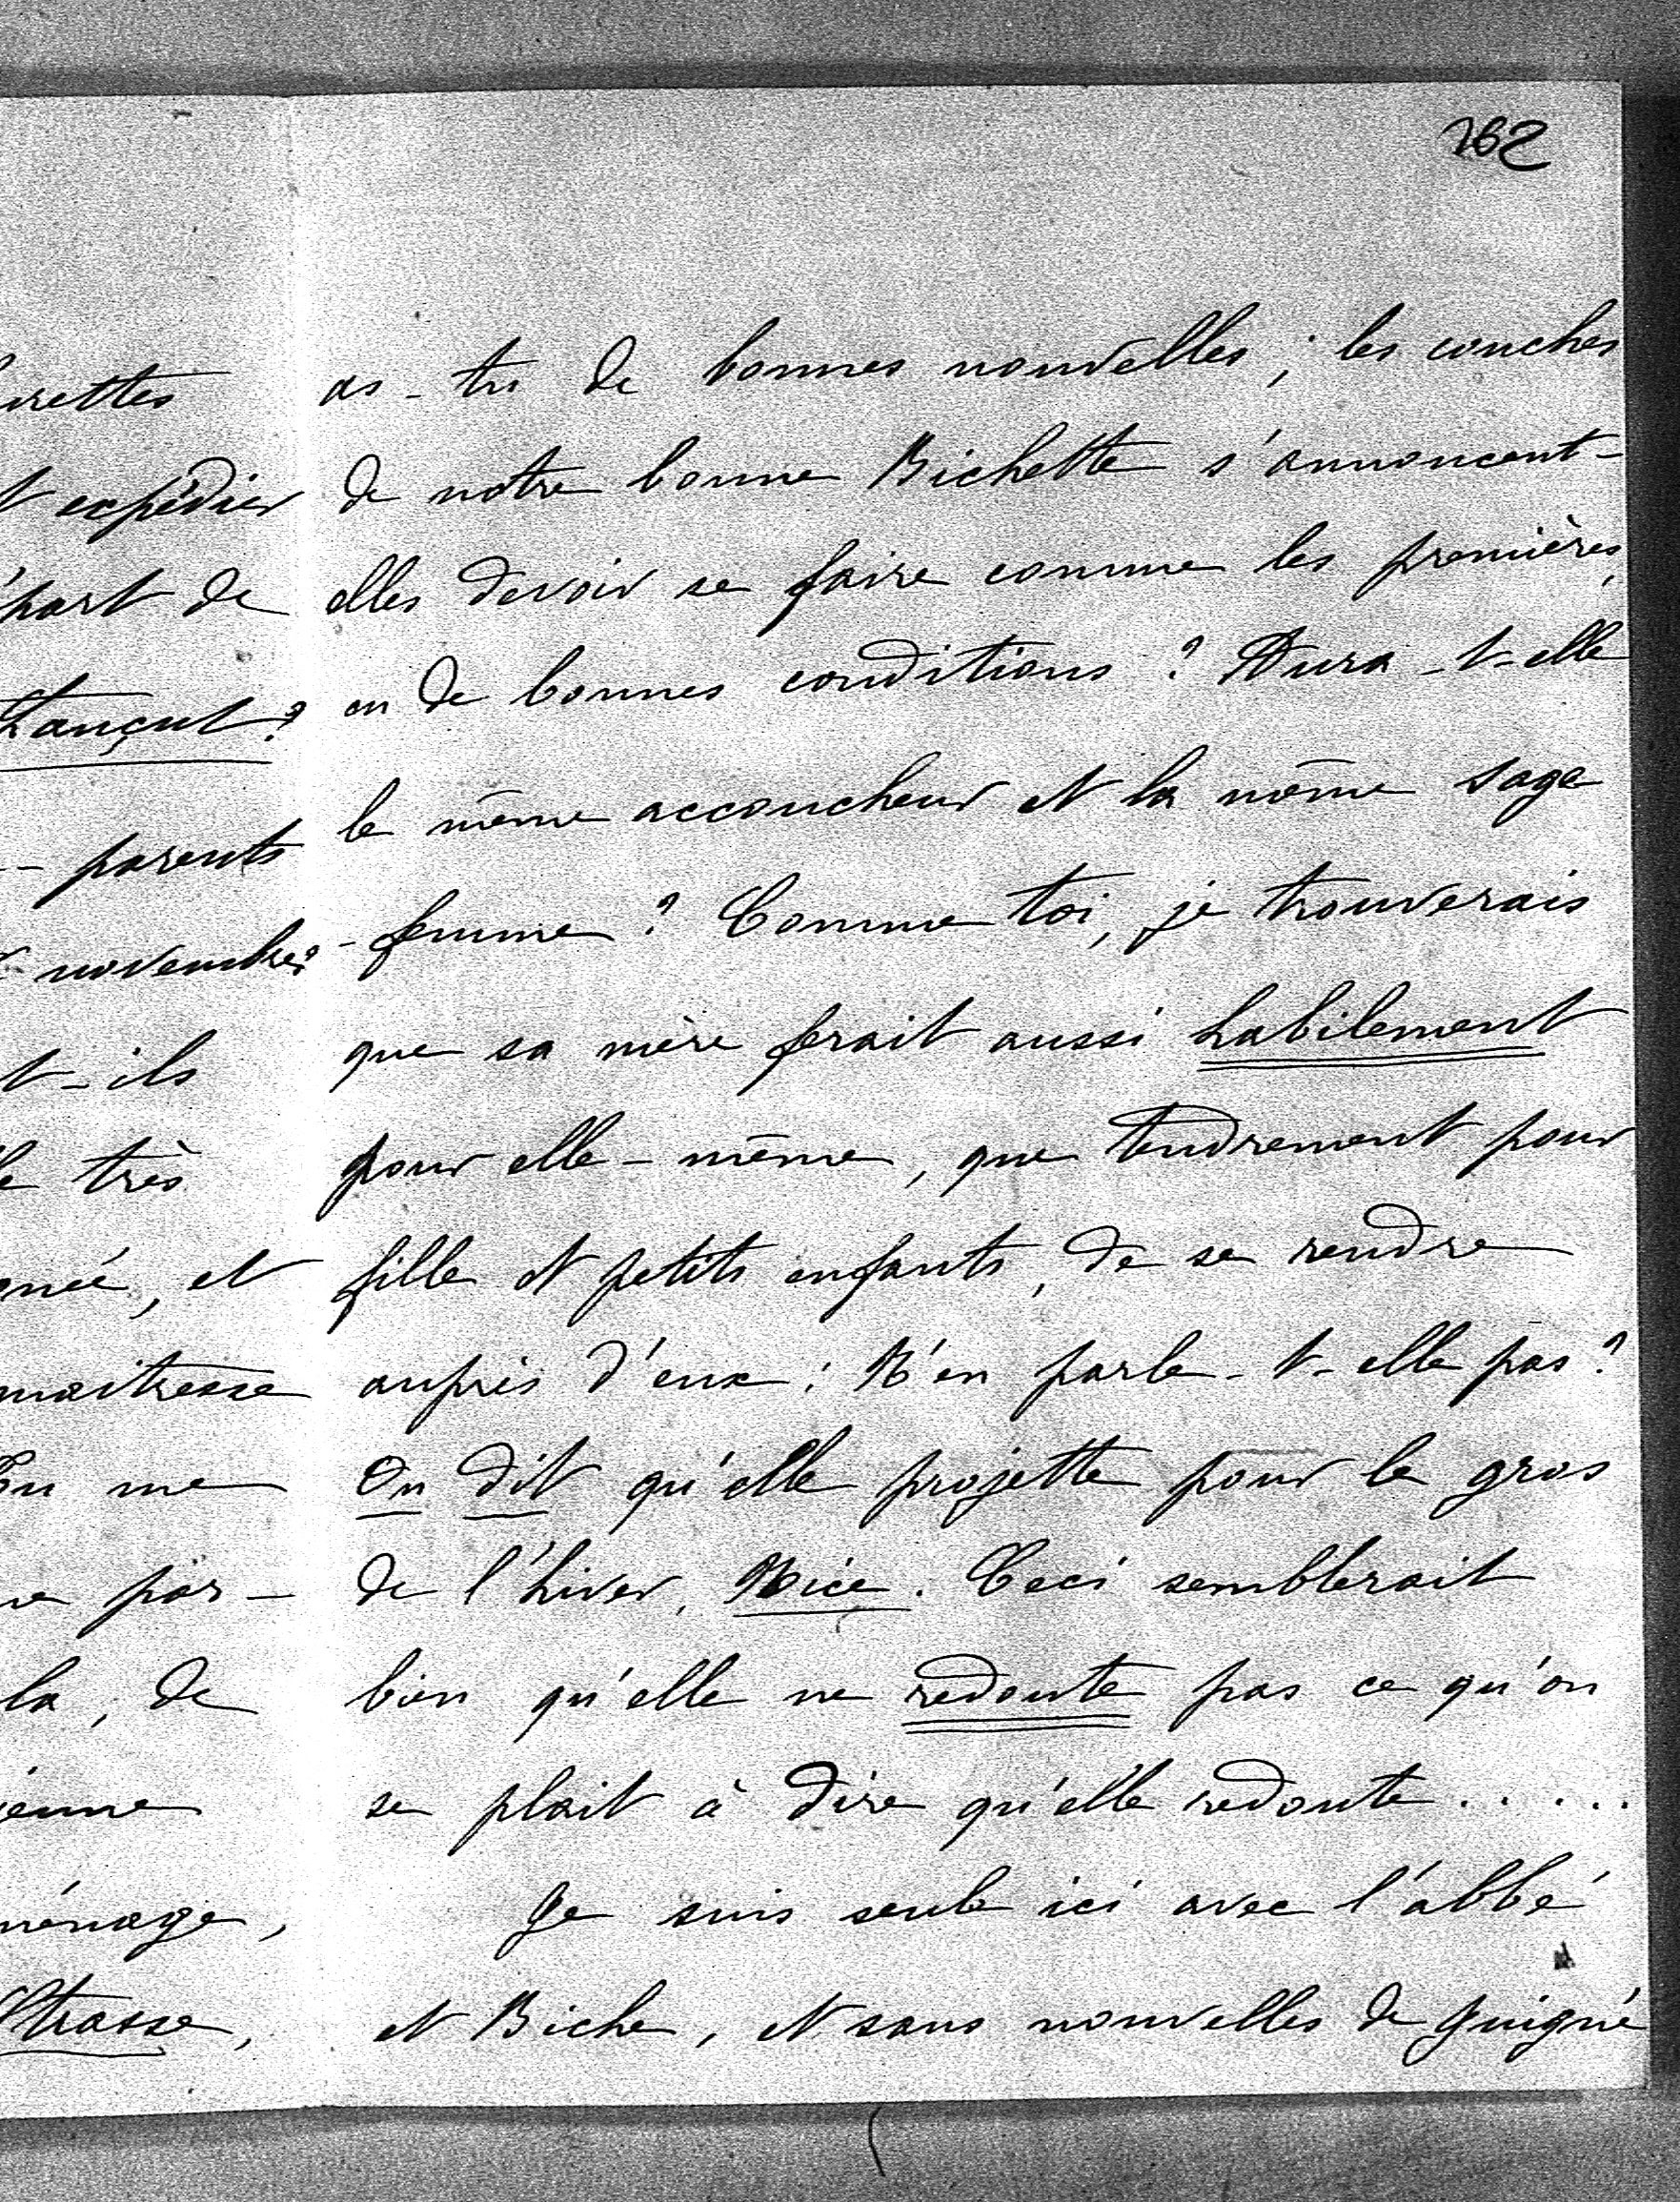 262
as-tu de bonnes nouvelles ; les couches
de notre bonne Bichette s'annoncent-
elles devoir se faire comme les premières,
en de bonnes conditions ? Aura-t-elle
le même accoucheur et la même sage
-femme ? Comme toi, je trouverais
que sa mère ferait aussi habilement
pour elle-même, que tendrement pour
fille et petits enfants, de se rendre
auprès d'eux ; N'en parle-t-elle pas ?
On dit qu'elle projette pour le gros
de l'hiver, Nice. Ceci semblerait
bien qu'elle ne redoute pas ce qu'on
se plait à dire qu'elle redoute.....
Je suis seule ici avec l'abbé
et Biche, et sans nouvelles de Guigné
expédier
part de
Łançut ?
parents
novembre ?
t-ils
très
née, et
maitresse
Tu me
par-
la, de
ménage,
Strasse,